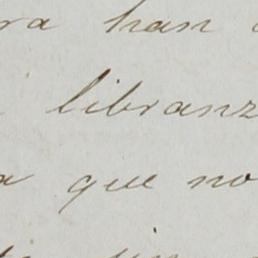 ra han
libranz
a que no